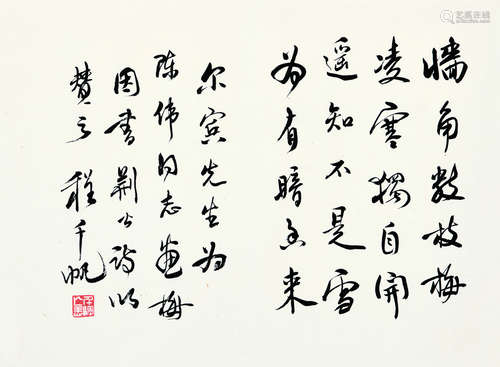 墙角数枝梅
凌寒独自开
遥知不是雪
为有暗香来
尔宾先生为
陈伟同志画梅
因书荆公诗以
赞之 程千帆